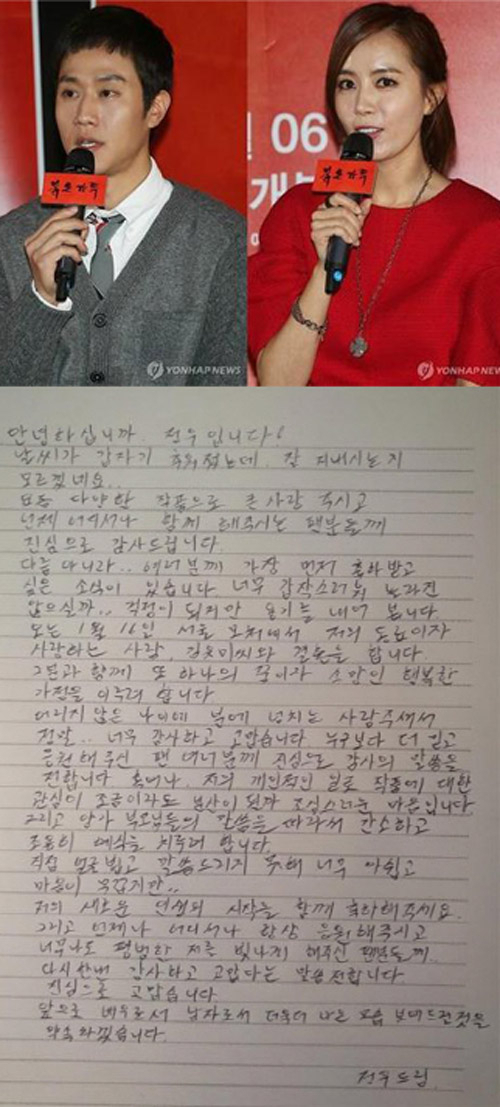 06
붉은 가족
붉은 가족
YONHAPNEWS
YONHAPNEWS
안녕하십니까. 정우입니다!
날씨가 갑자기 추워졌는데. 잘 지내시는지
모르겠네요..
요즘 다양한 작품으로 큰 사랑 주시고
언제 어디서나 함께 해주시는 팬분들께
진심으로 감사드립니다.
다름 아니라.. 여러분께 가장 먼저 축하받고
싶은 소식이 있습니다 너무 갑작스러워 놀라진
않으실까.. 걱정이 되지만 용기를 내어 봅니다
오는 1월 16일 서울 모처에서 저의 동료이자
사랑하는 사람, 김유미씨와 결혼을 합니다.
그분과 함께 또 하나의 꿈이자 소망인 행복한
가정을 이루려 합니다
어리지 않은 나이에 분에 넘치는 사랑주셔서
정말.. 너무 감사하고 고맙습니다 누구보다 더 믿고
응원해 주신 팬 여러분께 진심으로 감사의 말씀을
전합니다 혹여나. 저의 개인적인 일로 작품에 대한
관심이 조금이라도 분산이 될까 조심스러운 마음입니다
그리고 양가 부모님들의 말씀을 따라서 간소하고
조용히 예식을 치루려 합니다.
직접 얼굴 뵙고 말씀드리지 못해 너무 아쉽고
마음이 무겁지만..
저의 새로운 인생의 시작을 함께 축하해주세요.
그리고 언제나 어디서나 항상 응원해주시고
너무나도 평범한 저를 빛나게 해주신 팬분들께
다시한번 감사하고 고맙다는 말씀 전합니다.
진심으로 고맙습니다
앞으로 배우로서 남자로서 더욱더 나은 모습 보여드릴것을
약속하겠습니다.
정우드림.